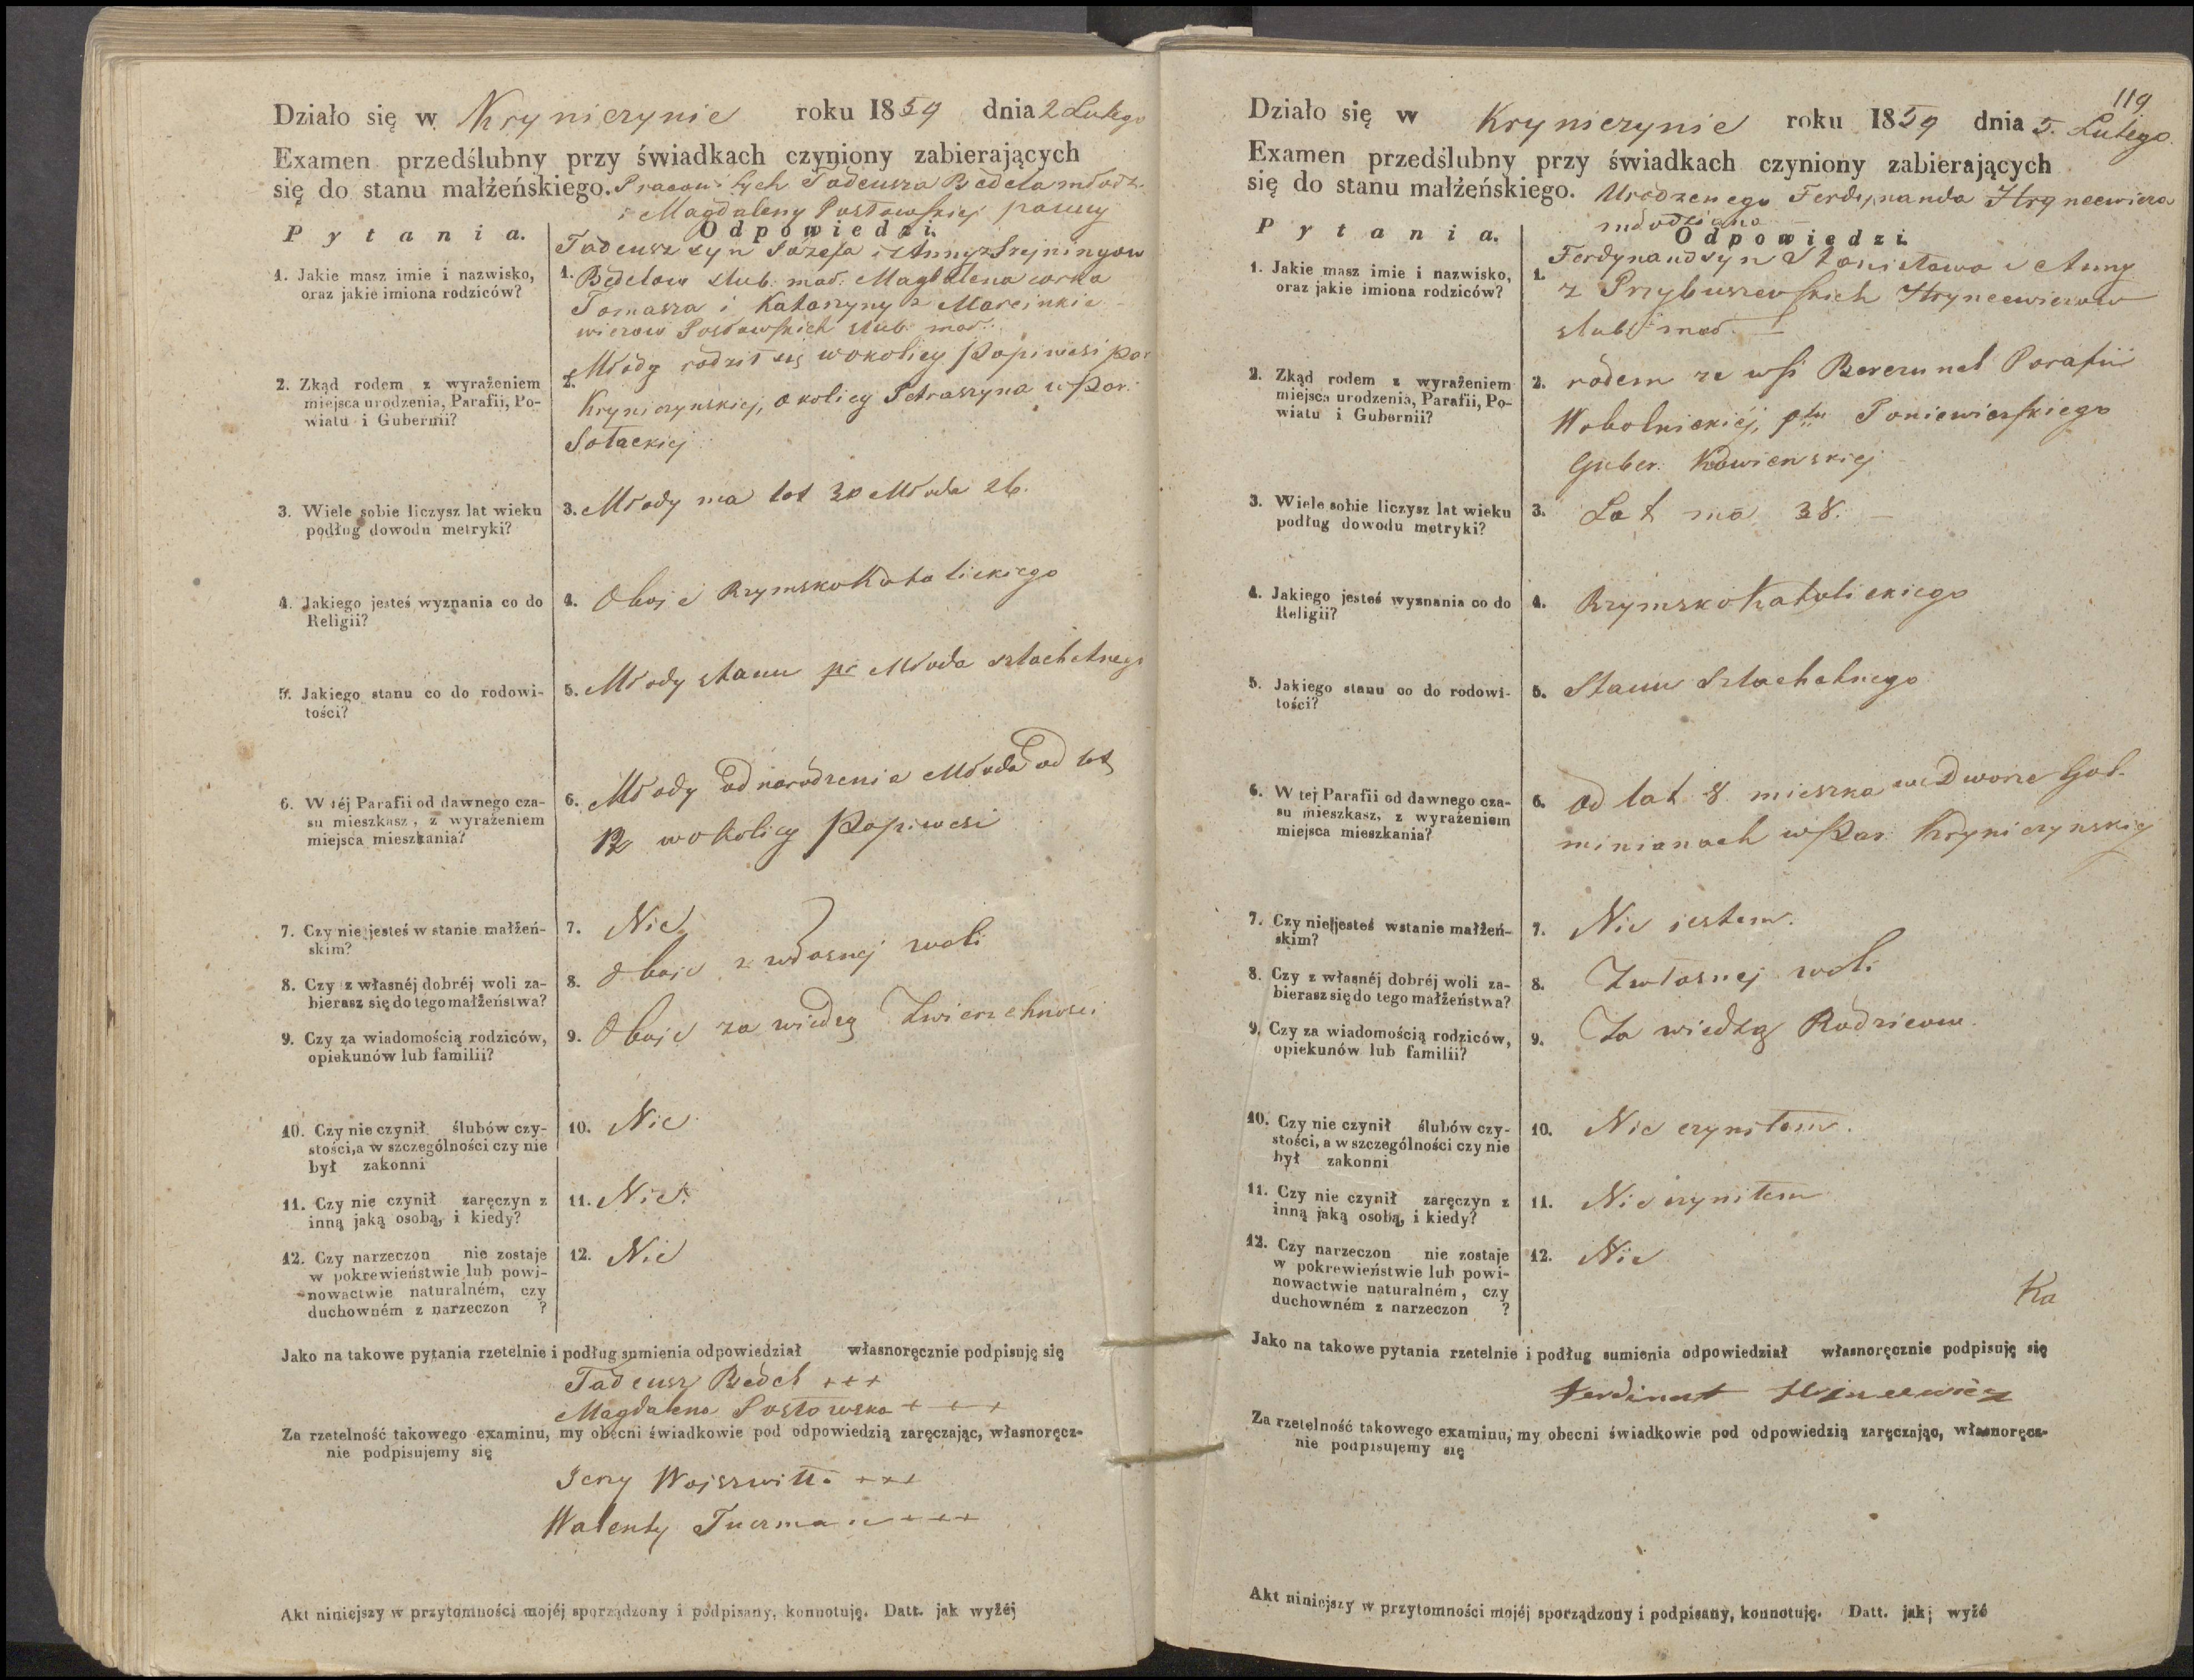 Działo się w Krynierynie roku 1859 dnia 2 Lutego
Examen przedślubny przy świadkach czyniony zabierających
się do stanu małżeńskiego. Pracowitych Tadeusza Bedela młodz.
i Magdaleny Postowskiej panny
Pytania. Odpowiedzi.
1. Jakie masz imie i nazwisko,
oraz jakie imiona rodziców?
1. Tadeusz syn Józefa i Anny z
Bedelow slub. mał. Magdalena corka
Tomasza i Katarzyny z Marcinkie-
wiczow Postowskich slub: mał.
2. Zkąd rodem z wyrażeniem
miejsca urodzenia, Parafii, Po-
wiatu i Gubernii?
2. Młody rodził się w okolicy Popiwesi par
Kryniczynskiej, okolicy Petraszyna w par.
Sołackiej
3. Wiele sobie liczysz lat wieku
podług dowodu metryki?
3. Młody ma lat 30 Młoda 26.
4. Jakiego jesteś wyznania co do
Religii?
4. Oboje Rzymsko Katolickiego
5. Jakiego stanu co do rodowi-
tości?
5. Młody stanu pr Młoda szlachetnego
6. W téj Parafii od dawnego cza-
su mieszkasz, z wyrażeniem
miejsca mieszkania?
6. Młody od narodzenia Młoda od lat
12 w okolicy Popiwesi
7. Czy nie jesteś w stanie małżeń-
skim?
7. Nie
8. Czy z własnéj dobréj woli za-
bierasz się do tego małżeństwa?
8. Oboje z własnej woli
9. Czy za wiadomością rodziców,
opiekunów lub familii?
9. Oboje za wiedzą Zwierzchnosci
10. Czy nie czynił ślubów czy-
stości, a w szczególności czy nie
był zakonni
10. Nie
11. Czy nie czynił zaręczyn z
inną jaką osobą, i kiedy?
11. Nie.
12. Czy narzeczon nie zostaje
w pokrewieństwie lub powi-
nowactwie naturalném, czy
duchowném z narzeczon ?
12. Nie
Jako na takowe pytania rzetelnie i podług sumienia odpowiedział własnoręcznie podpisuję się
Tadeusz Bedel +++
Magdalena Postowska +++
Za rzetelność takowego examinu, my obecni świadkowie pod odpowiedzią zaręczając, własnoręcz-
nie podpisujemy się
Jerzy Wojszwiłło +++
Walenty +++
Akt niniejszy w przytomności mojéj sporządzony i podpisany, konnotuję. Datt. jak wyżéj
119
Działo się w Kryniczynie roku 1859 dnia 5. Lutego
Examen przedślubny przy świadkach czyniony zabierających
się do stanu małżeńskiego. Urodzonego Ferdynanda Hryncewicza
młodziana
Pytania. Odpowiedzi.
1. Jakie masz imie i nazwisko,
oraz jakie imiona rodziców?
1. Ferdynand syn Stanisława i Anny
z Przybuszewskich Hryncewiczow
slub: mał.
2. Zkąd rodem z wyrażeniem
miejsca urodzenia, Parafii, Po-
wiatu i Gubernii?
2. rodem ze wsi Parafii
Wobolnickiéj, ptu Poniewieskiego
Guber. Kowienskiej
3. Wiele sobie liczysz lat wieku
podług dowodu metryki?
3. Lat ma 38.
4. Jakiego jesteś wyznania co do
Religii?
4. Rzymsko Katolickiego
5. Jakiego stanu co do rodowi-
tości?
5. Stanu Szlachetnego
6. W tej Parafii od dawnego cza-
su mieszkasz, z wyrażeniem
miejsca mieszkania?
6. Od lat 8 mieszka we Dworze Goł-
minianach w Par. Kryniczynskiej
7. Czy nie jesteś wstanie małżeń-
skim?
7. Nie jestem.
8. Czy z własnéj dobréj woli za-
bierasz się do tego małżeństwa?
8. Z własnej woli
9. Czy za wiadomością rodziców,
opiekunów lub familii?
9. Za wiedzą Rodzicow.
10. Czy nie czynił ślubów czy-
stości, a w szczególności czy nie
był zakonni
10. Nie czyniłem.
11. Czy nie czynił zaręczyn z
inną jaką osobą, i kiedy?
11. Nie czyniłem
12. Czy narzeczon nie zostaje
w pokrewieństwie lub powi-
nowactwie naturalném, czy
duchowném z narzeczon ?
12. Nie
Ka
Jako na takowe pytania rzetelnie i podług sumienia odpowiedział własnoręcznie podpisuję się
Ferdinant
Za rzetelność takowego examinu, my obecni świadkowie pod odpowiedzią zaręczając, własnoręcz-
nie podpisujemy się
Akt niniejszy w przytomności mojéj sporządzony i podpisany, konnotuję. Datt. jak wyżé